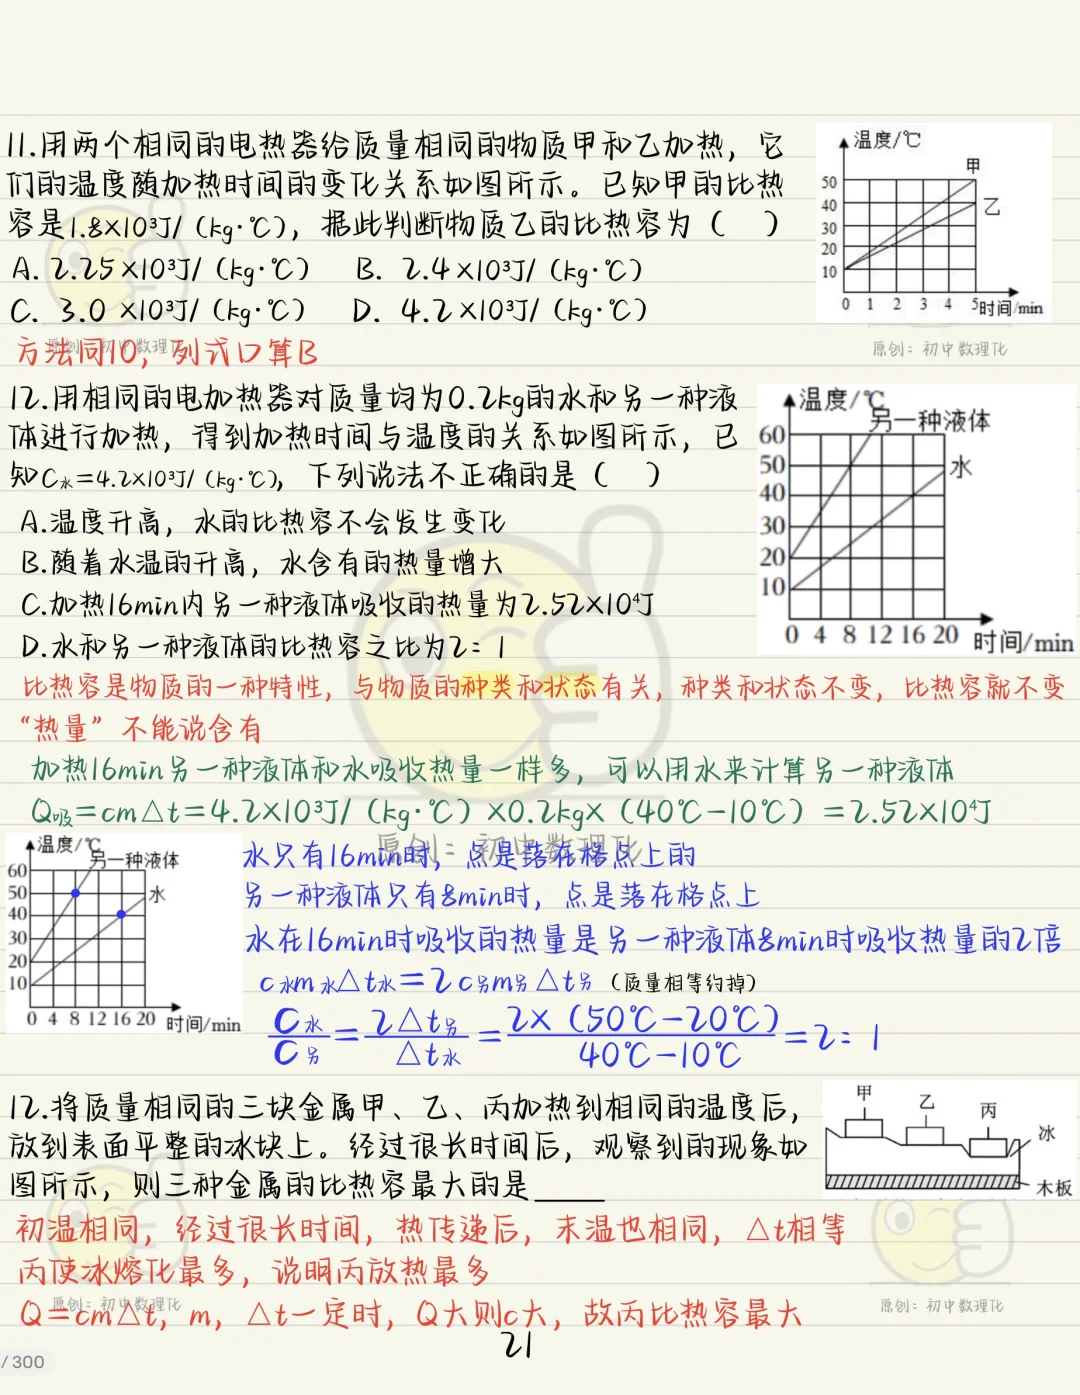 11.用两个相同的电热器给质量相同的物质甲和乙加热，它
们的温度随加热时间的变化关系如图所示。已知甲的比热
容是1.8×10³J/（kg·℃），据此判断物质乙的比热容为（　）
A. 2.25×10³J/（kg·℃）　B. 2.4×10³J/（kg·℃）
C. 3.0 ×10³J/（kg·℃）　D. 4.2×10³J/（kg·℃）
温度/℃
甲
乙
50
40
30
20
10
0 1 2 3 4 5 时间/min
原创：初中数理化
原创：初中数理化
方法同10，列式口算B
12.用相同的电加热器对质量均为0.2kg的水和另一种液
体进行加热，得到加热时间与温度的关系如图所示，已
知C水=4.2×10³J/（kg·℃），下列说法不正确的是（　）
A.温度升高，水的比热容不会发生变化
B.随着水温的升高，水含有的热量增大
C.加热16min内另一种液体吸收的热量为2.52×10⁴J
D.水和另一种液体的比热容之比为2：1
温度/℃
另一种液体
水
60
50
40
30
20
10
0 4 8 12 16 20 时间/min
比热容是物质的一种特性，与物质的种类和状态有关，种类和状态不变，比热容就不变
“热量”不能说含有
加热16min另一种液体和水吸收热量一样多，可以用水来计算另一种液体
Q吸=cm△t=4.2×10³J/（kg·℃）×0.2kg×（40℃-10℃）=2.52×10⁴J
原创：初中数理化
温度/℃
另一种液体
水
60
50
40
30
20
10
0 4 8 12 16 20 时间/min
水只有16min时，点是落在格点上的
另一种液体只有8min时，点是落在格点上
水在16min时吸收的热量是另一种液体8min时吸收热量的2倍
c水m水△t水=2c另m另△t另（质量相等约掉）
C水/C另=2△t另/△t水=2×（50℃-20℃）/40℃-10℃=2：1
12.将质量相同的三块金属甲、乙、丙加热到相同的温度后，
放到表面平整的冰块上。经过很长时间后，观察到的现象如
图所示，则三种金属的比热容最大的是_____
甲
乙
丙
冰
木板
初温相同，经过很长时间，热传递后，末温也相同，△t相等
丙使冰熔化最多，说明丙放热最多
Q=cm△t，m，△t一定时，Q大则c大，故丙比热容最大
原创：初中数理化
原创：初中数理化
21
/ 300